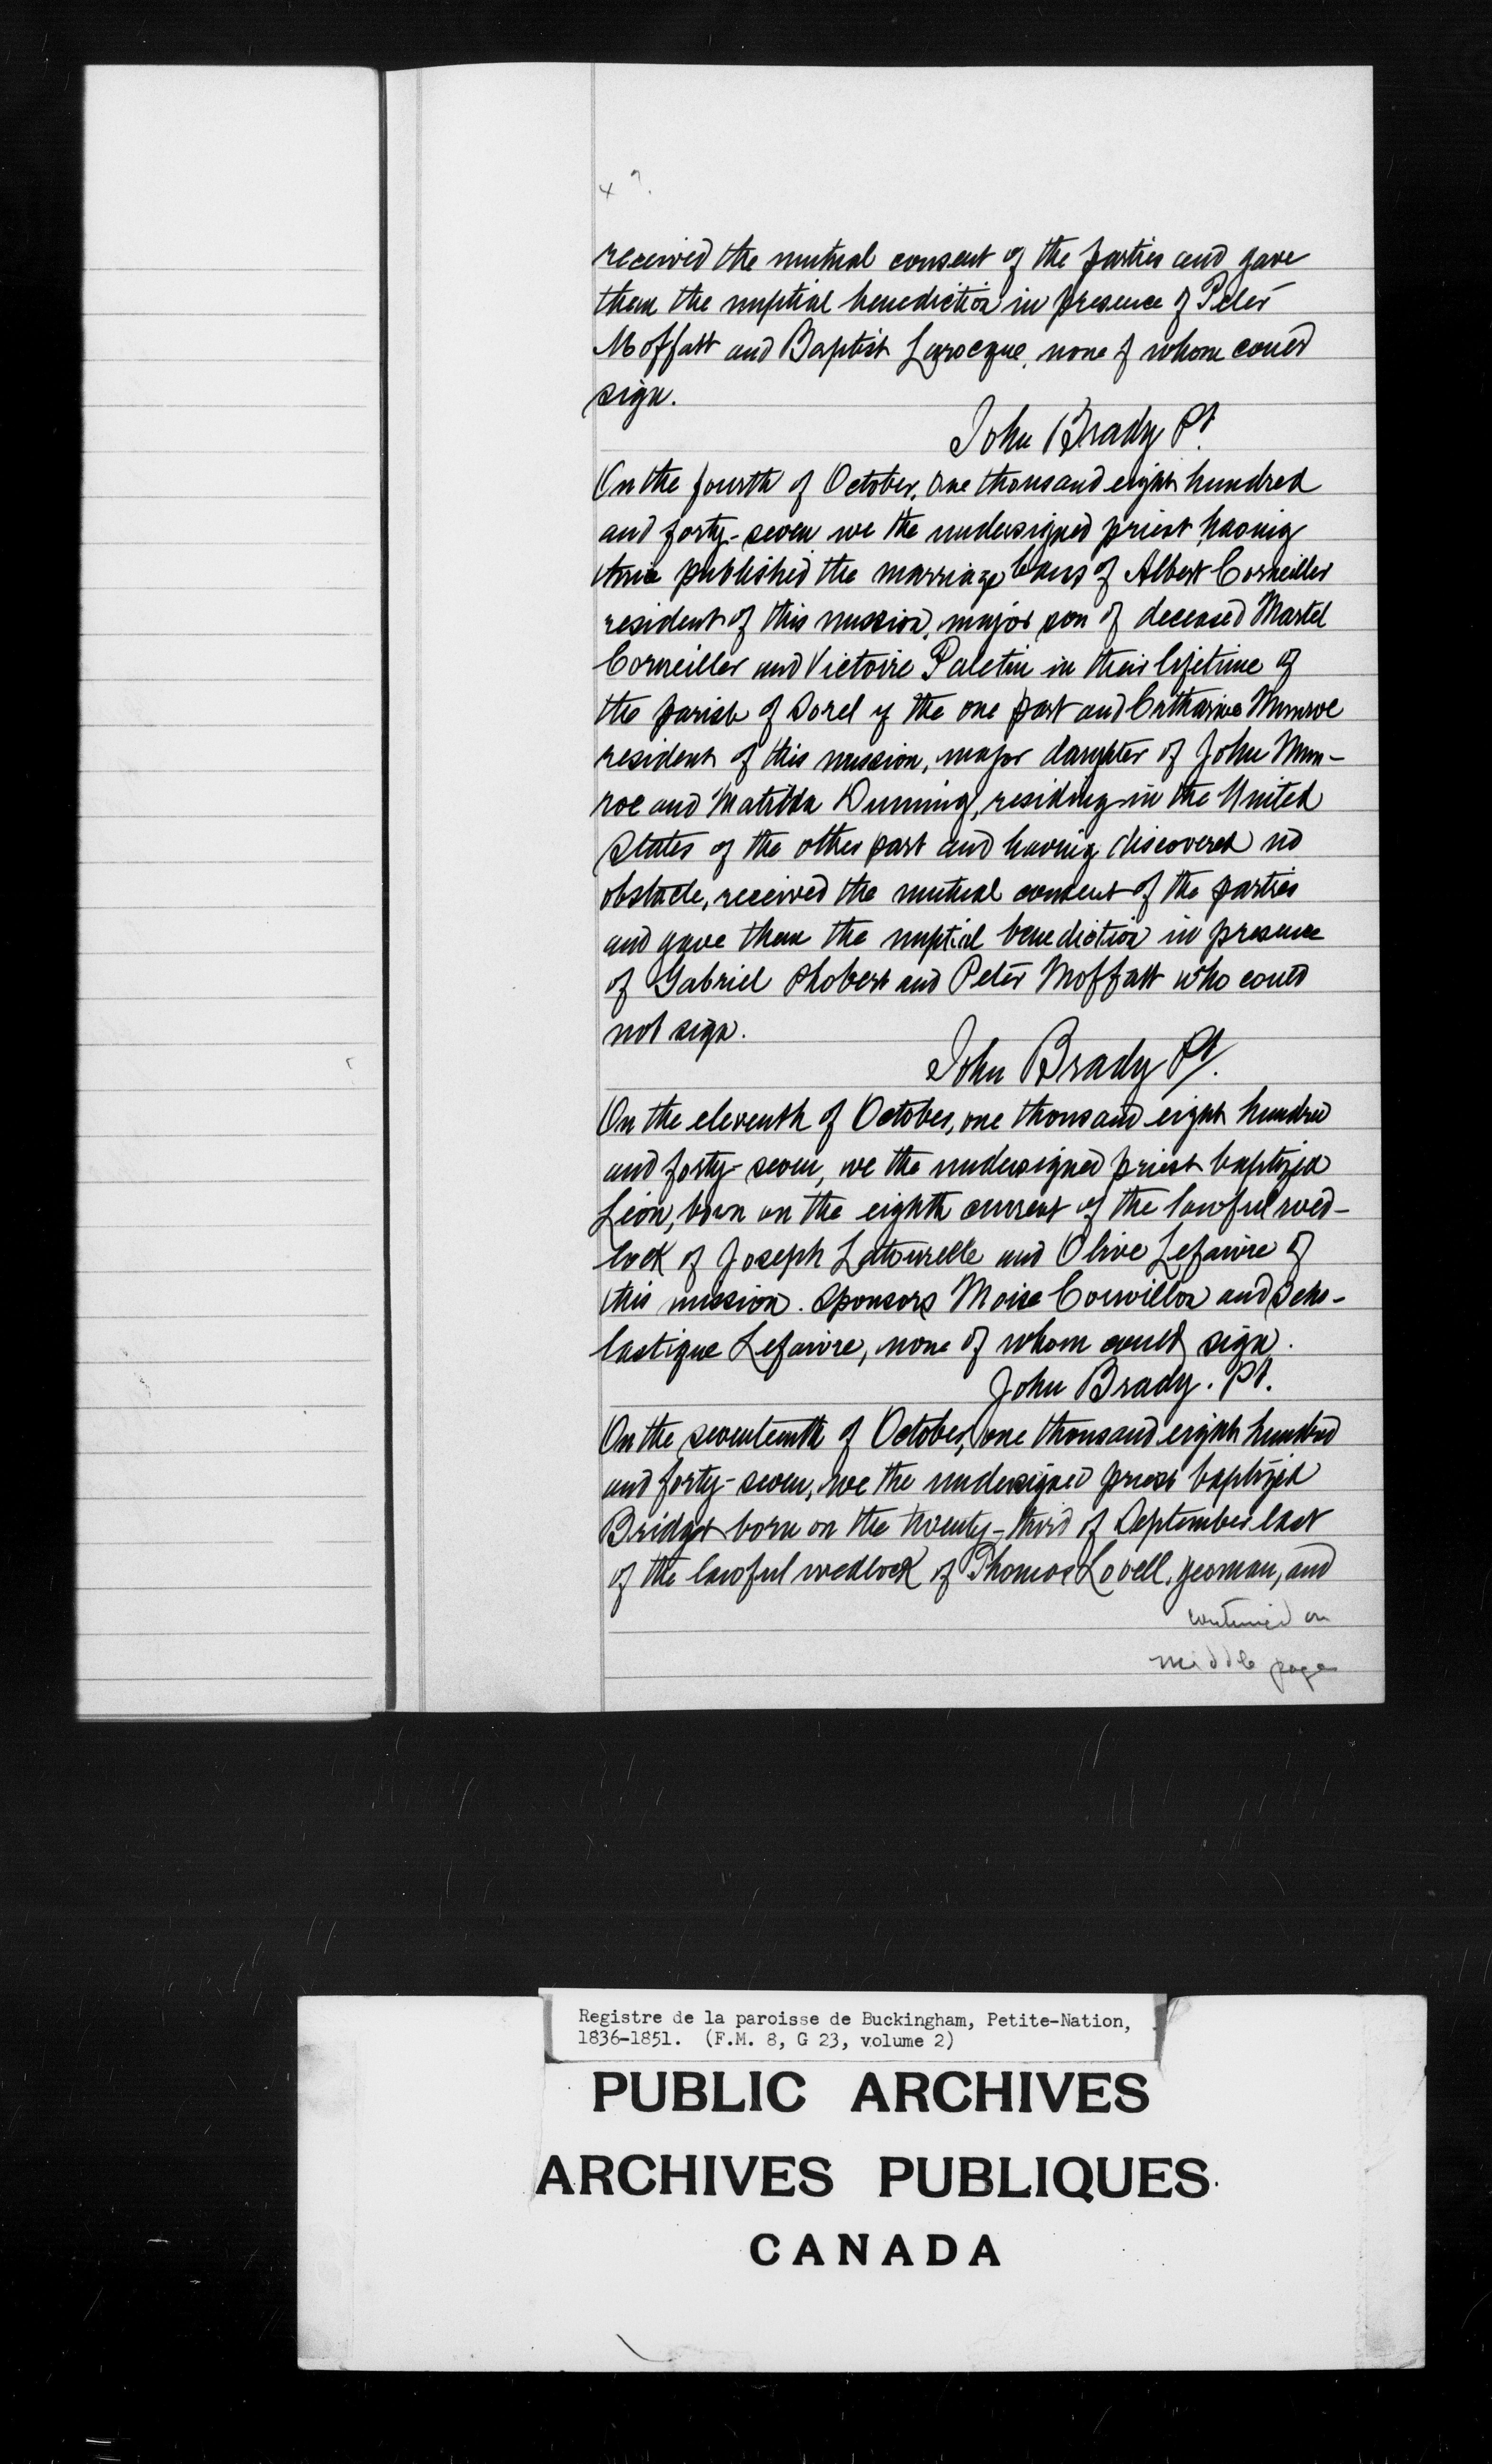 received the mutual consent of the parties and gave
them the nuptial benediction in presence of Peter
Moffatt and Baptist Larocque, none of whom could
sign.
John Brady Pt.
On the fourth of October, one thousand eight hundred
and forty-seven we the undersigned priest having
published the marriage bans of Albert Corneiller
resident of this mission, major son of deceased Martel
Corneiller and Victoire Paletin in their lifetime of
the parish of Sorel of the one part and Catharine Munroe
resident of this mission, major daughter of John Mun-
roe and Matilda Dunning, residing in the United
States of the other part and having discovered no
obstacle, received the mutual consent of the parties
and gave them the nuptial benediction in presence
of Gabriel Phobert and Peter Moffatt who could
not sign.
John Brady Pt.
On the eleventh of October, one thousand eight hundred
and forty-seven, we the undersigned priest baptized
Léon, born on the eighth current of the lawful wed-
lock of Joseph Latourelle and Olive Lefaivre of
this mission. Sponsors Moise Courvillon and Scho-
lastique Lefaivre, none of whom could sign.
John Brady. Pt.
On the seventeenth of October, one thousand eight hundred
and forty-seven, we the undersigned priest baptized
Bridget born on the twenty-third of September last
of the lawful wedlock of Thomas Lovell, yeoman, and
continued on
middle page
Registre de la paroisse de Buckingham, Petite-Nation,
1836-1851. (F.M. 8, G 23, volume 2)
PUBLIC ARCHIVES
ARCHIVES PUBLIQUES
CANADA